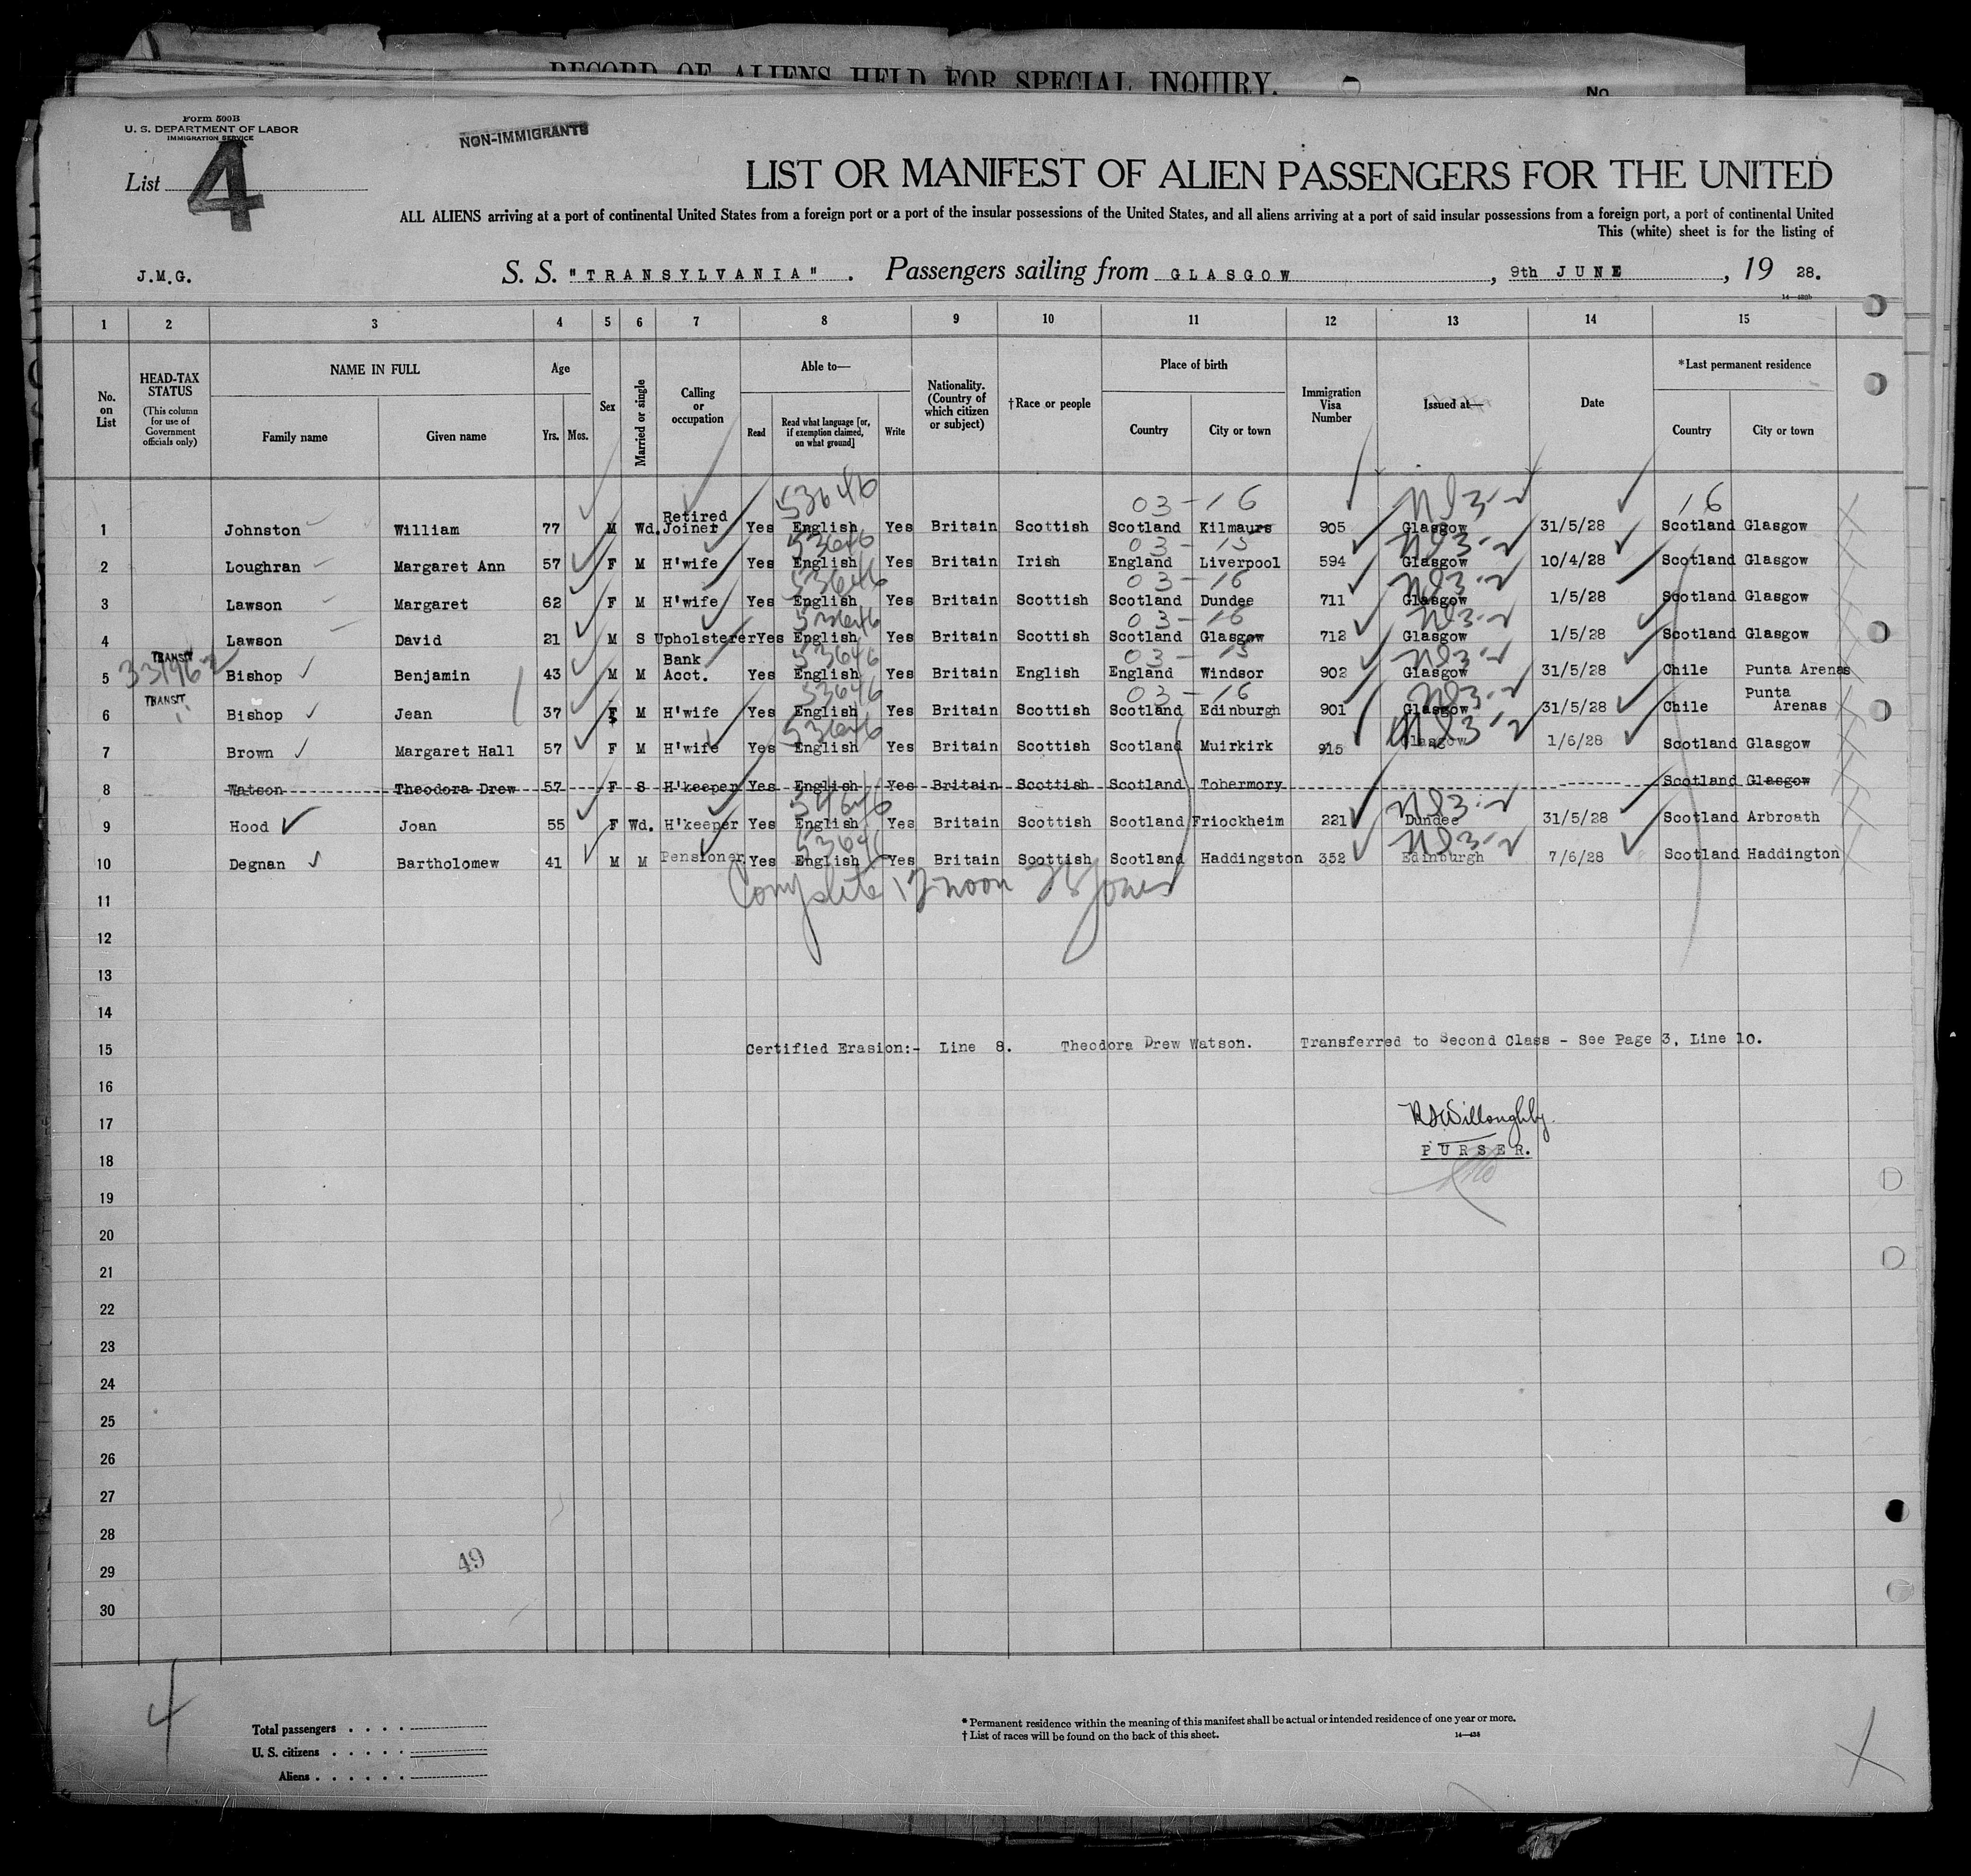 RECORD OF ALIENS HELD FOR SPECIAL INQUIRY.
No.
Form 500B
U. S. DEPARTMENT OF LABOR
IMMIGRATION SERVICE
NON-IMMIGRANTS
List 4
LIST OR MANIFEST OF ALIEN PASSENGERS FOR THE UNITED
ALL ALIENS arriving at a port of continental United States from a foreign port or a port of the insular possessions of the United States, and all aliens arriving at a port of said insular possessions from a foreign port, a port of continental United
This (white) sheet is for the listing of
J.M.G.
S. S. "TRANSYLVANIA". Passengers sailing from GLASGOW, 9th JUNE, 19 28.
1 2 3 4 5 6 7 8 9 10 11 12 13 14 15
No. on List
HEAD-TAX STATUS (This column for use of Government officials only)
NAME IN FULL
Family name Given name
Age
Yrs. Mos.
Sex
Married or single
Calling or occupation
Able to—
Read Read what language [or, if exemption claimed, on what ground] Write
Nationality. (Country of which citizen or subject)
†Race or people
Place of birth
Country City or town
Immigration Visa Number
Issued at—
Date
*Last permanent residence
Country City or town
53646 03-16 16
1 Johnston William 77 M Wd. Retired Joiner Yes English Yes Britain Scottish Scotland Kilmaurs 905 Glasgow 31/5/28 Scotland Glasgow
53646 03-15
2 Loughran Margaret Ann 57 F M H'wife Yes English Yes Britain Irish England Liverpool 594 Glasgow 10/4/28 Scotland Glasgow
53646 03-16
3 Lawson Margaret 62 F M H'wife Yes English Yes Britain Scottish Scotland Dundee 711 Glasgow 1/5/28 Scotland Glasgow
53646 03-16
4 Lawson David 21 M S Upholsterer Yes English Yes Britain Scottish Scotland Glasgow 712 Glasgow 1/5/28 Scotland Glasgow
TRANSIT 53646 03-15
5 Bishop Benjamin 43 M M Bank Acct. Yes English Yes Britain English England Windsor 902 Glasgow 31/5/28 Chile Punta Arenas
TRANSIT 53646 03-16
6 Bishop Jean 37 F M H'wife Yes English Yes Britain Scottish Scotland Edinburgh 901 Glasgow 31/5/28 Chile Punta Arenas
53646
7 Brown Margaret Hall 57 F M H'wife Yes English Yes Britain Scottish Scotland Muirkirk 915 Glasgow 1/6/28 Scotland Glasgow
8 Watson Theodora Drew 57 F S H'keeper Yes English Yes Britain Scottish Scotland Tobermory Scotland Glasgow
9 Hood Joan 55 F Wd. H'keeper Yes English Yes Britain Scottish Scotland Friockheim 221 Dundee 31/5/28 Scotland Arbroath
53646
10 Degnan Bartholomew 41 M M Pensioner Yes English Yes Britain Scottish Scotland Haddingston 352 Edinburgh 7/6/28 Scotland Haddington
Complete 12 noon Jones
11
12
13
14
15 Certified Erasion:- Line 8. Theodora Drew Watson. Transferred to Second Class - See Page 3, Line 10.
16
17 Willoughby.
18 PURSER.
19
20
21
22
23
24
25
26
27
28
29 49
30
4
Total passengers
U. S. citizens
Aliens
* Permanent residence within the meaning of this manifest shall be actual or intended residence of one year or more.
† List of races will be found on the back of this sheet.
14—438